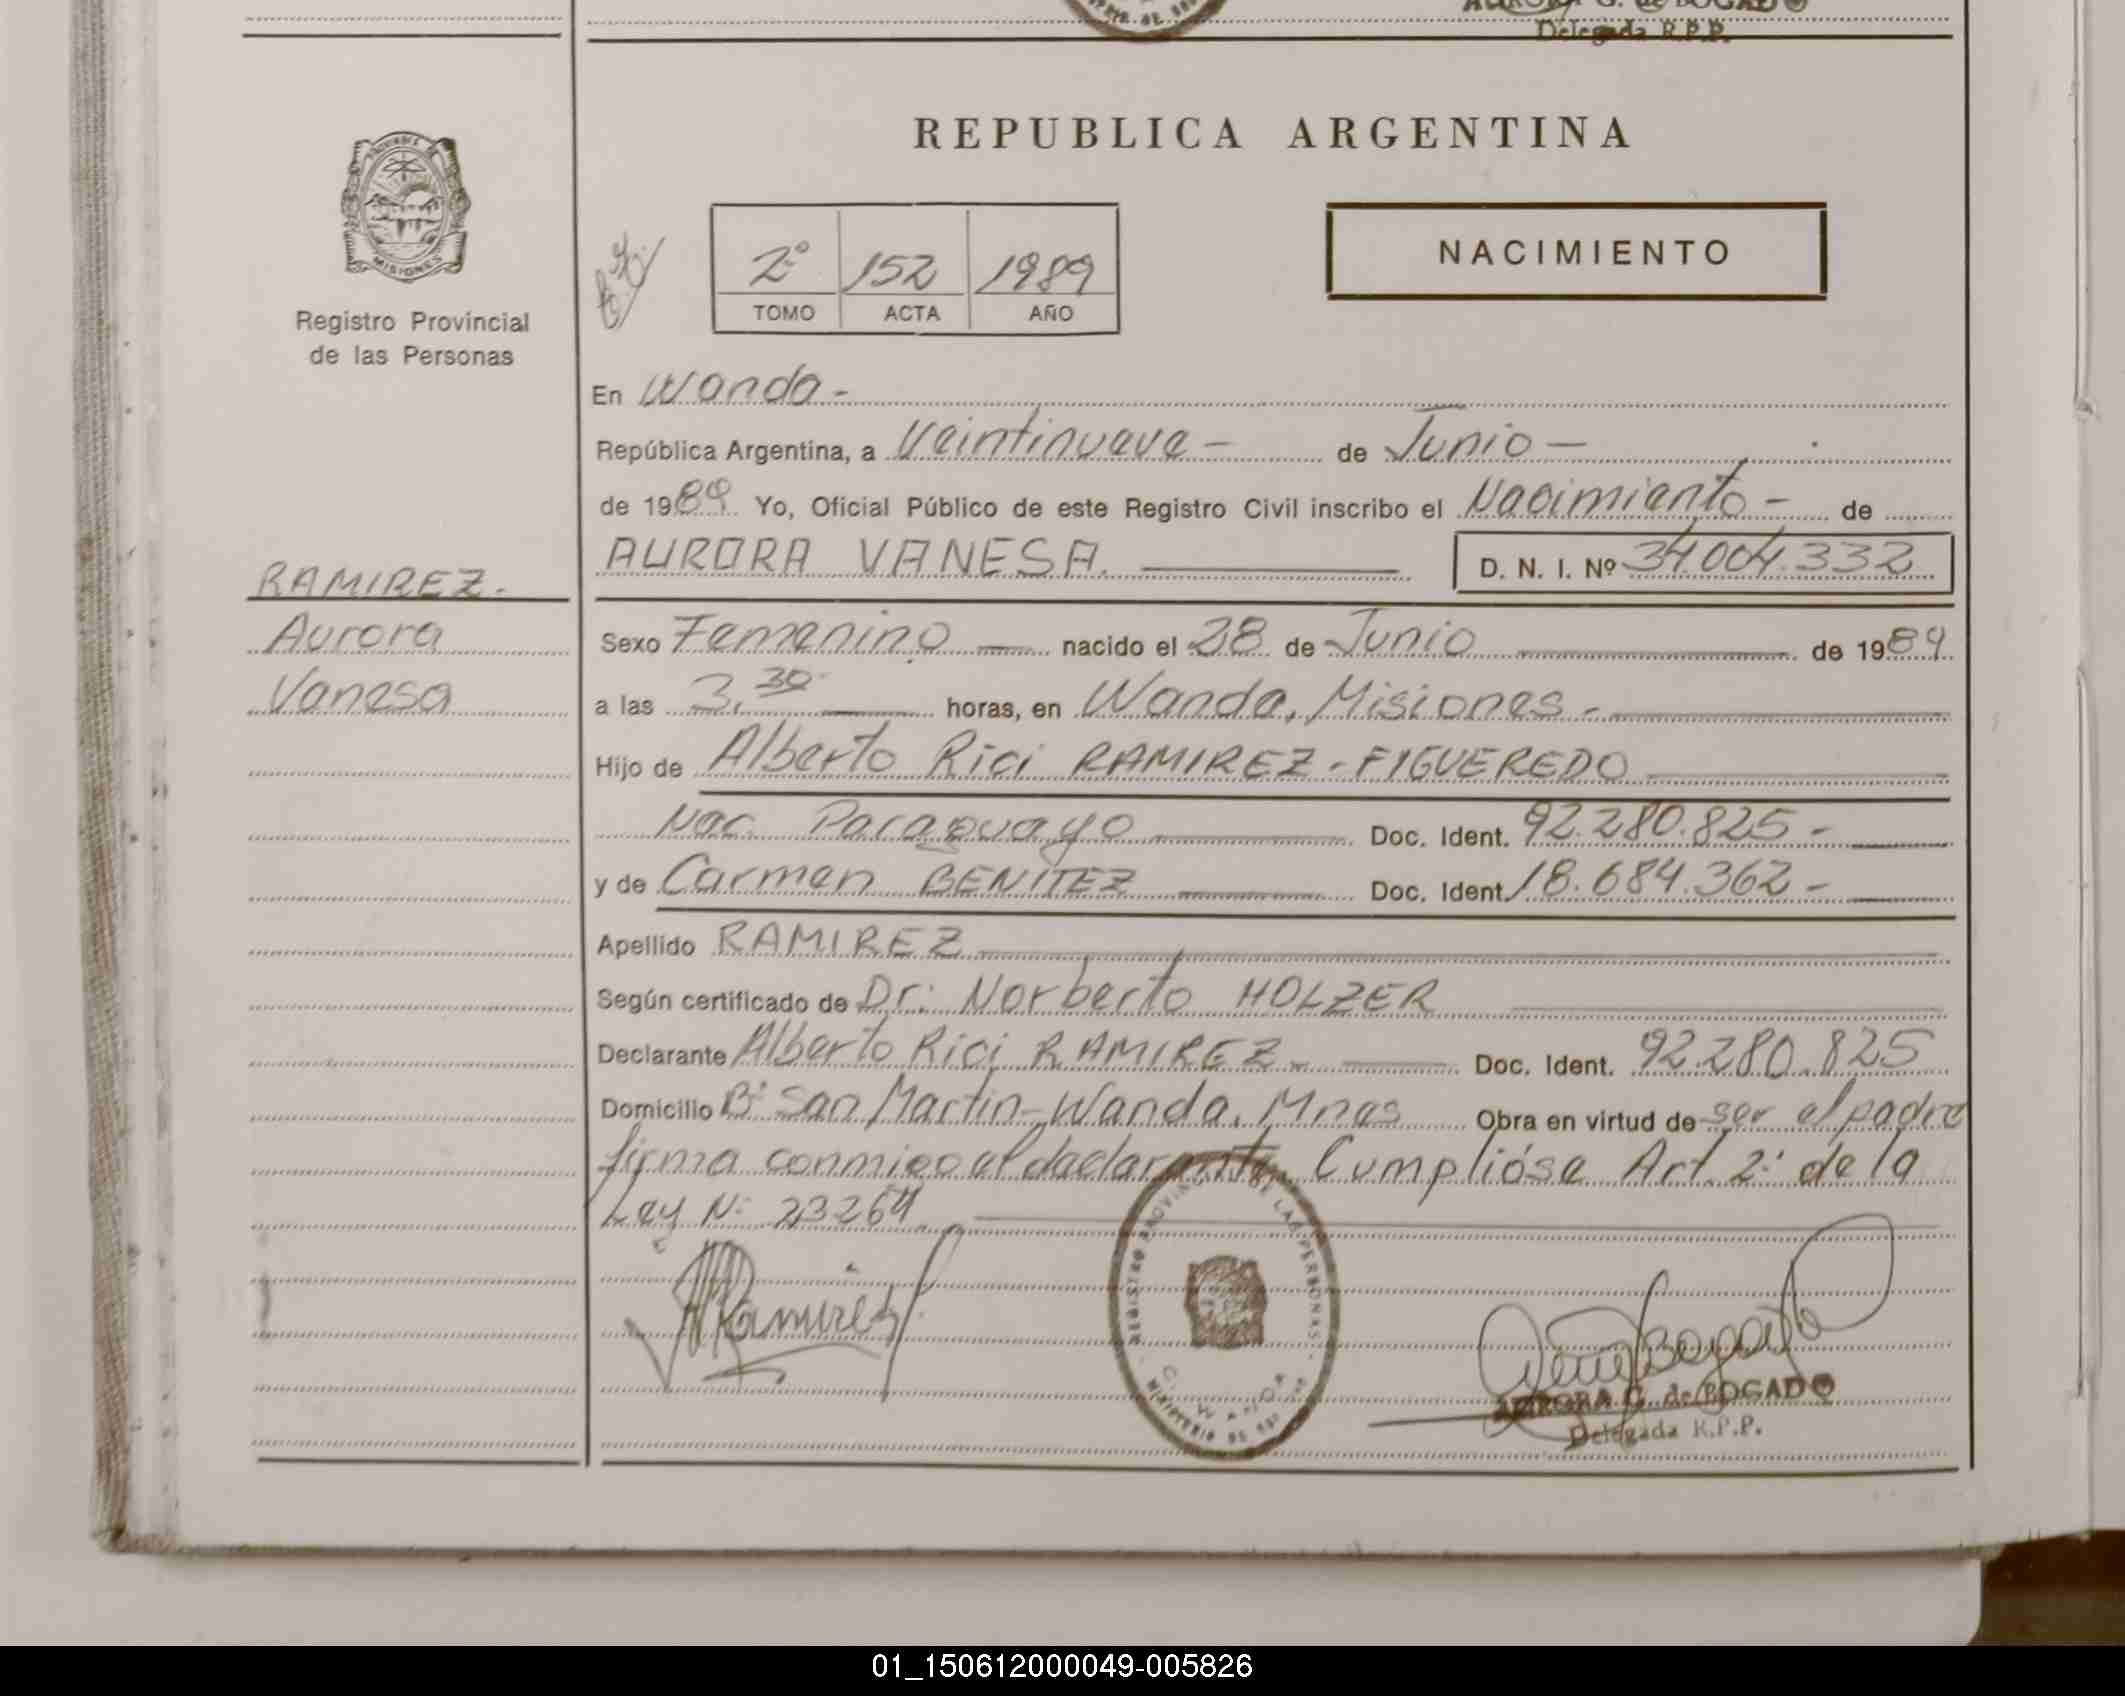 AURORA G. de BOGADO
Delegada R.P.P.
REPUBLICA ARGENTINA
NACIMIENTO
2º 152 1989
TOMO ACTA AÑO
MISIONES
Registro Provincial
de las Personas
En Wanda-
República Argentina, a Veintinueve - de Junio -
de 1989 Yo, Oficial Público de este Registro Civil inscribo el Nacimiento - de
AURORA VANESA. D. N. I. Nº 34.004.332
RAMIREZ.-
Aurora
Vanesa
Sexo Femenino nacido el 28 de Junio de 1989
a las 3,30 horas, en Wanda, Misiones.-
Hijo de Alberto Rici RAMIREZ-FIGUEREDO
Nac. Paraguayo Doc. Ident. 92.280.825-
y de Carmen BENITEZ Doc. Ident. 18.684.362-
Apellido RAMIREZ
Según certificado de Dr: Norberto HOLZER
Declarante Alberto Rici RAMIREZ- Doc. Ident. 92.280.825
Domicilio Bº San Martin-Wanda, Mnes Obra en virtud de ser el padre
firma conmigo el declarante, Cumplióse Art. 2º de la
Ley Nº 23264
Ramirez
REGISTRO PROVINCIAL DE LAS PERSONAS
WANDA
MINISTERIO DE
AURORA G. de BOGADO
Delegada R.P.P.
01_150612000049-005826